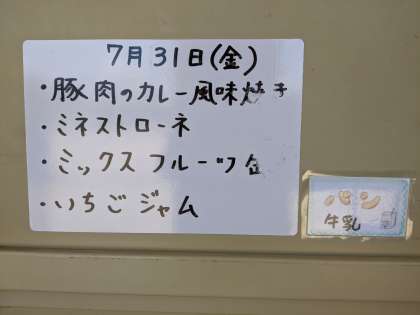 7月31日(金)
・豚肉のカレー風味焼き
・ミネストローネ
・ミックスフルーツ缶
・いちごジャム
パン
牛乳